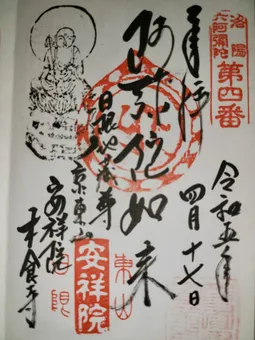 洛陽
六阿弥陀
第四番
奉拝
令和五年
四月十七日
阿弥陀如来
日限地蔵尊
京東山
安祥院
木食寺
東山
安祥院
日限